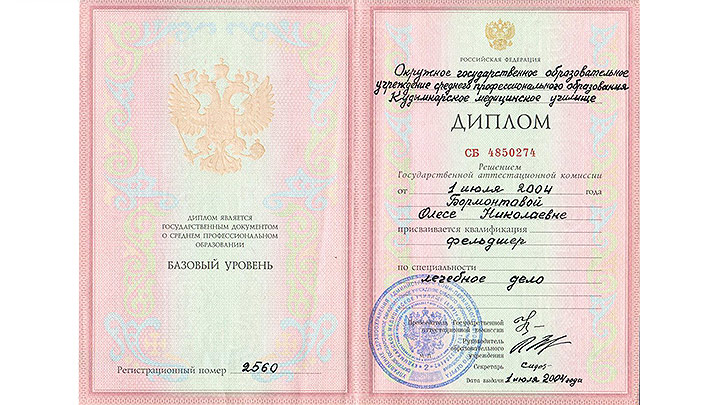 ДИПЛОМ ЯВЛЯЕТСЯ
ГОСУДАРСТВЕННЫМ ДОКУМЕНТОМ
О СРЕДНЕМ ПРОФЕССИОНАЛЬНОМ
ОБРАЗОВАНИИ
БАЗОВЫЙ УРОВЕНЬ
Регистрационный номер 2560
РОССИЙСКАЯ ФЕДЕРАЦИЯ
Окружное государственное образовательное
учреждение среднего профессионального образования
Кудымкарское медицинское училище
ДИПЛОМ
СБ 4850274
Решением
Государственной аттестационной комиссии
от 1 июля 2004 года
Бормонтавой
Олесе Николаевне
присваивается квалификация
фельдшер
по специальности
лечебное дело
Председатель Государственной
аттестационной комиссии
Руководитель
образовательного
учреждения
Секретарь
Дата выдачи 1 июля 2004 года